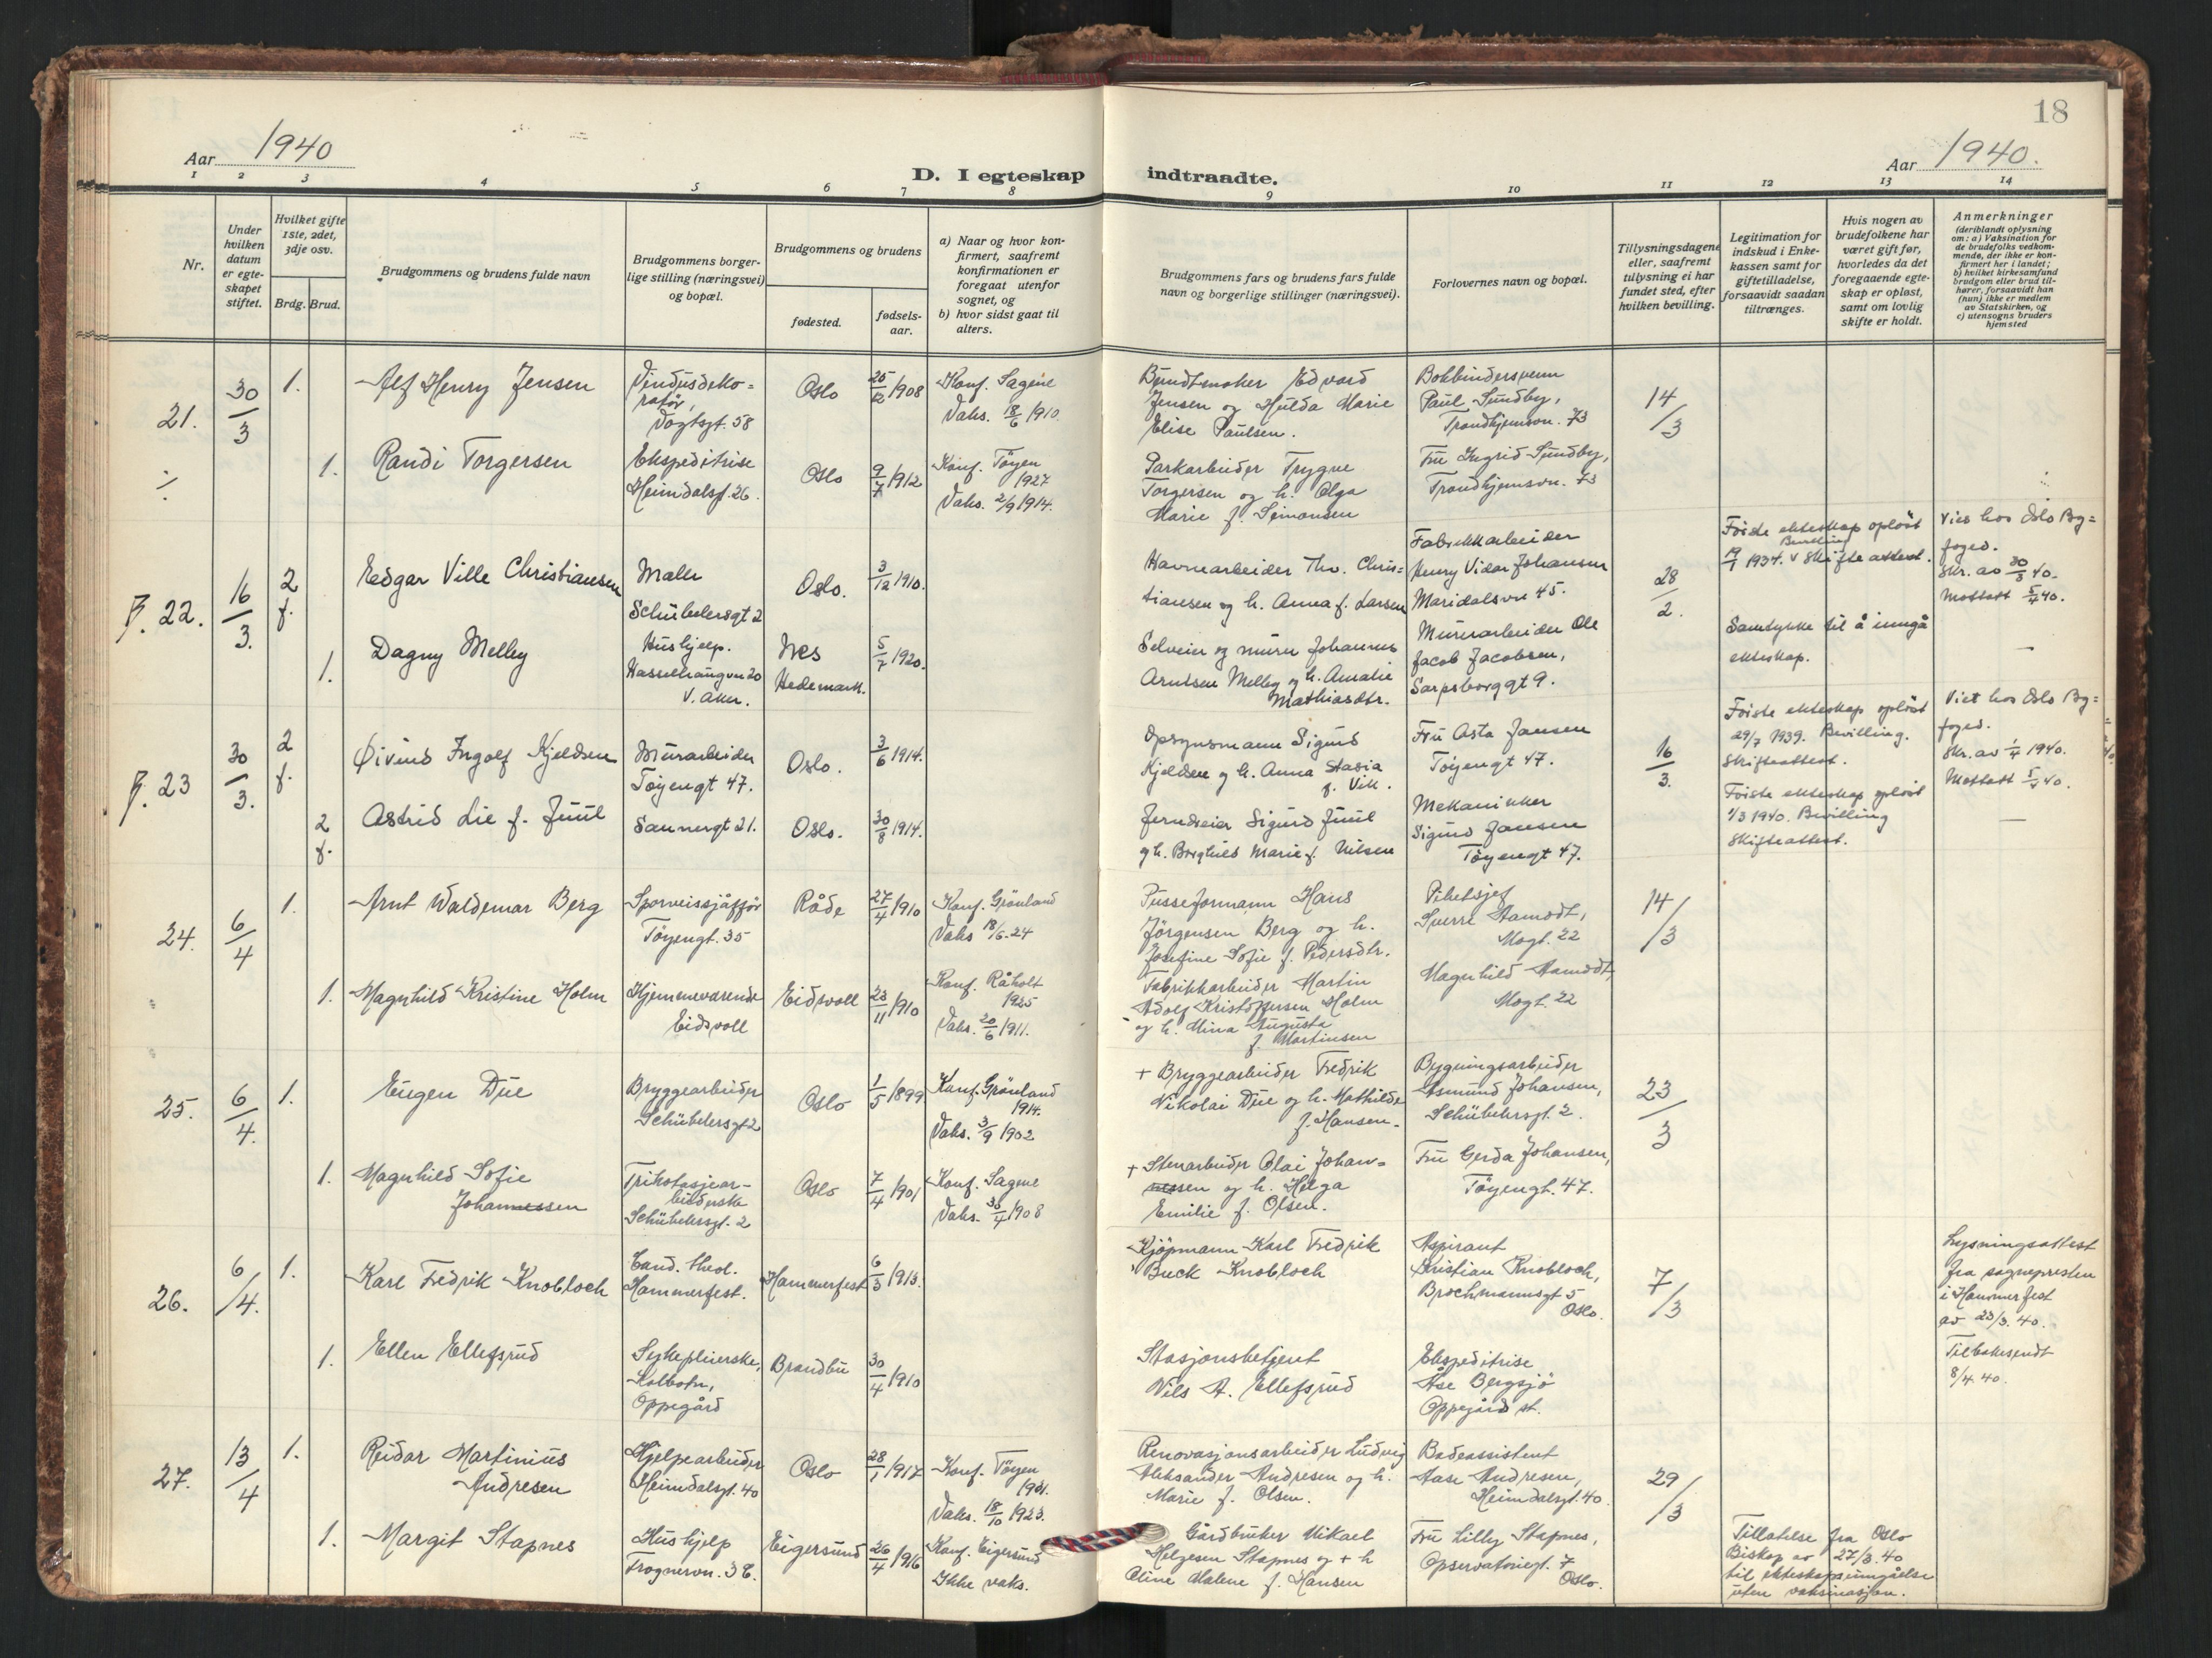 18
Aar 1940
Aar 1940.
D. I egteskap indtraadte.
1 2 3 4 5 6 7 8 9 10 11 12 13 14
Nr.
Under hvilken datum er egte-skapet stiftet.
Hvilket gifte 1ste, 2det, 3dje osv.
Brdg. Brud.
Brudgommens og brudens fulde navn
Brudgommens borger-lige stilling (næringsvei) og bopæl.
Brudgommens og brudens
fødested.
fødsels-aar.
a) Naar og hvor kon-firmert, saafremt konfirmationen er foregaat utenfor sognet, og
b) hvor sidst gaat til alters.
Brudgommens fars og brudens fars fulde navn og borgerlige stillinger (næringsvei).
Forlovernes navn og bopæl.
Tillysningsdagene eller, saafremt tillysning ei har fundet sted, efter hvilken bevilling.
Legitimation for indskud i Enke-kassen samt for giftetilladelse, forsaavidt saadan tiltrænges.
Hvis nogen av brudefolkene har været gift før, hvorledes da det foregaaende egte-skap er opløst, samt om lovlig skifte er holdt.
Anmerkninger
(deriblandt oplysning om: a) Vaksination for de brudefolks vedkom-mende, der ikke er kon-firmert her i landet; b) hvilket kirkesamfund brudgom eller brud til-hører, forsaavidt han (hun) ikke er medlem av Statskirken, og c) utensogns bruders hjemsted
21.
30/3
1.
Alf Henry Jensen
Vindusdeko=
ratør,
Vogtsgt. 58
Oslo
25/12 1908
Konf. Sagene
Vaks. 18/6 1910.
Bundtmaker Edvard
Jensen og Hulda Marie
Elise Paulsen.
Bokbindersvenn
Paul Sundby,
Trondhjemsvn. 73
14/3
1.
Randi Torgersen
Ekspeditrise
Heimdalsgt. 26.
Oslo
9/7 1912
Konf. Tøyen
1927
Vaks. 2/9 1914.
Parkarbeider Trygve
Torgersen og h. Olga
Marie f. Simonsen
Fru Ingrid Sundby,
Trondhjemsvn. 73
F. 22.
16/3.
2 f.
Edgar Ville Christiansen
Maler
Schübelersgt 2
Oslo.
3/12 1910.
Havnearbeider Thv. Chris=
tiansen og h. Anna f. Larsen
Fabrikkarbeider
Henry Vidar Johansen
Maridalsvn 45.
28/2.
Første ekteskap opløst
Bevilling
19/1 1934. v Skifteattest.
Viet hos Oslo By=
foged.
Skr. av 30/3 40.
Mottatt 5/4 40.
1.
Dagny Melby
Hushjelp.
Hasselhaugvn 20
V. Aker.
Nes
Hedemark.
5/7 1920.
Selveier og murer Johannes
Arntsen Melby og h. Amalie
Mathiasdtr.
Murerarbeider Ole
Jacob Jacobsen,
Sarpsborggt 9.
Samtykke til å inngå
ekteskap.
F. 23
30/3.
2 f.
Øivind Ingolf Kjeldsen
Murarbeider
Tøyengt 47.
Oslo.
3/6 1914.
Opsynsmann Sigurd
Kjeldsen og h. Anna Stasia
f. Vik.
Fru Asta Jansen
Tøyengt 47.
16/3.
Første ekteskap opløst
29/7 1939. Bevilling.
Skifteattest.
Viet hos Oslo By=
foged.
Skr. av 1/4 1940.
Mottatt 5/4 40.
2 f.
Astrid Lie f. Juul
Sannergt 21.
Oslo.
30/8 1914.
Jerndreier Sigurd Juul
og h. Borghild Marie f. Nilsen
Mekaniker
Sigurd Jansen
Tøyengt 47.
Første ekteskap opløst
1/3 1940. Bevilling
Skifteattest.
24.
6/4
1.
Arnt Waldemar Berg
Sporveissjåffør
Tøyengt. 35
Råde
27/4 1910
Konf. Grønland
Vaks 18/6.24
Pusseformann Hans
Jørgensen Berg og h.
Josefine Sofie f. Pedersdtr.
Sverre Aamodt,
Mogt. 22
14/3
1.
Magnhild Kristine Holm
Hjemmeværende
Eidsvoll
Eidsvoll
23/11 1910
Konf. Råholt
1925
Vaks. 20/6 1911.
Fabrikkarbeider Martin
Adolf Kristoffersen Holm
og h. Mina Augusta
f. Martinsen
Magnhild Aamodt,
Mogt. 22
25.
6/4.
1.
Eugen Due
Bryggearbeider
Schübelersgt 2
Oslo
1/5 1899
Konf. Grønland
1914.
Vaks. 3/9 1902
+ Bryggearbeider Fredrik
Nikolai Due og h. Mathilde
f. Hansen.
Bygningsarbeider
Asmund Johansen,
Schübelersgt. 2.
23/3
1.
Magnhild Sofie
Johannessen
Trikotasjear-
beiderske
Schübelersgt. 2
Oslo
7/4 1901
Konf. Sagene
Vaks. 30/4 1908
+ Stenarbeider Olai Johan=
nessen og h. Helga
Emilie f. Olsen.
Fru Gerda Johansen,
Tøyengt. 47.
26.
6/4.
1.
Karl Fredrik Knobloch
Cand. theol.
Hammerfest.
Hammerfest
6/3 1913.
Kjøpmann Karl Fredrik
Buck Knobloch
Aspirant
Kristian Knobloch,
Brochmannsgt 5
Oslo.
7/3
Lysningsattest
fra sognepresten
i Hammerfest
av 23/3. 40.
Tilbakesendt
8/4. 40.
1.
Ellen Ellefsrud
Sykepleierske,
Kolbotn,
Oppegård
Brandbu
30/4 1910
Stasjonsbetjent
Nils A. Ellefsrud
Ekspeditrise
Åse Bergsjø
Oppegård st.
27.
13/4
1.
Reidar Martinius
Andresen
Hjelpearbeider
Heimdalsgt. 40
Oslo
28/1 1917
Konf. Tøyen
1931.
Vaks. 18/10 1923.
Renovasjonsarbeider Ludvig
Aleksander Andresen og h.
Marie f. Olsen.
Badeassistent
Aase Andresen,
Heimdalsgt. 40.
29/3
1.
Margit Stapnes
Hushjelp
Trognervn. 3 B.
Eigersund
26/4 1916
Konf. Eigersund
Ikke vaks.
Gårdbruker Mikael
Helgesen Stapnes og + h
Oline Malene f. Hansen
Fru Lilly Stapnes,
Opservatoriegt. 7
Oslo.
Tillatelse fra Oslo
Biskop av 27/3. 40
til ekteskapsinngåelse
uten vaksinasjon.